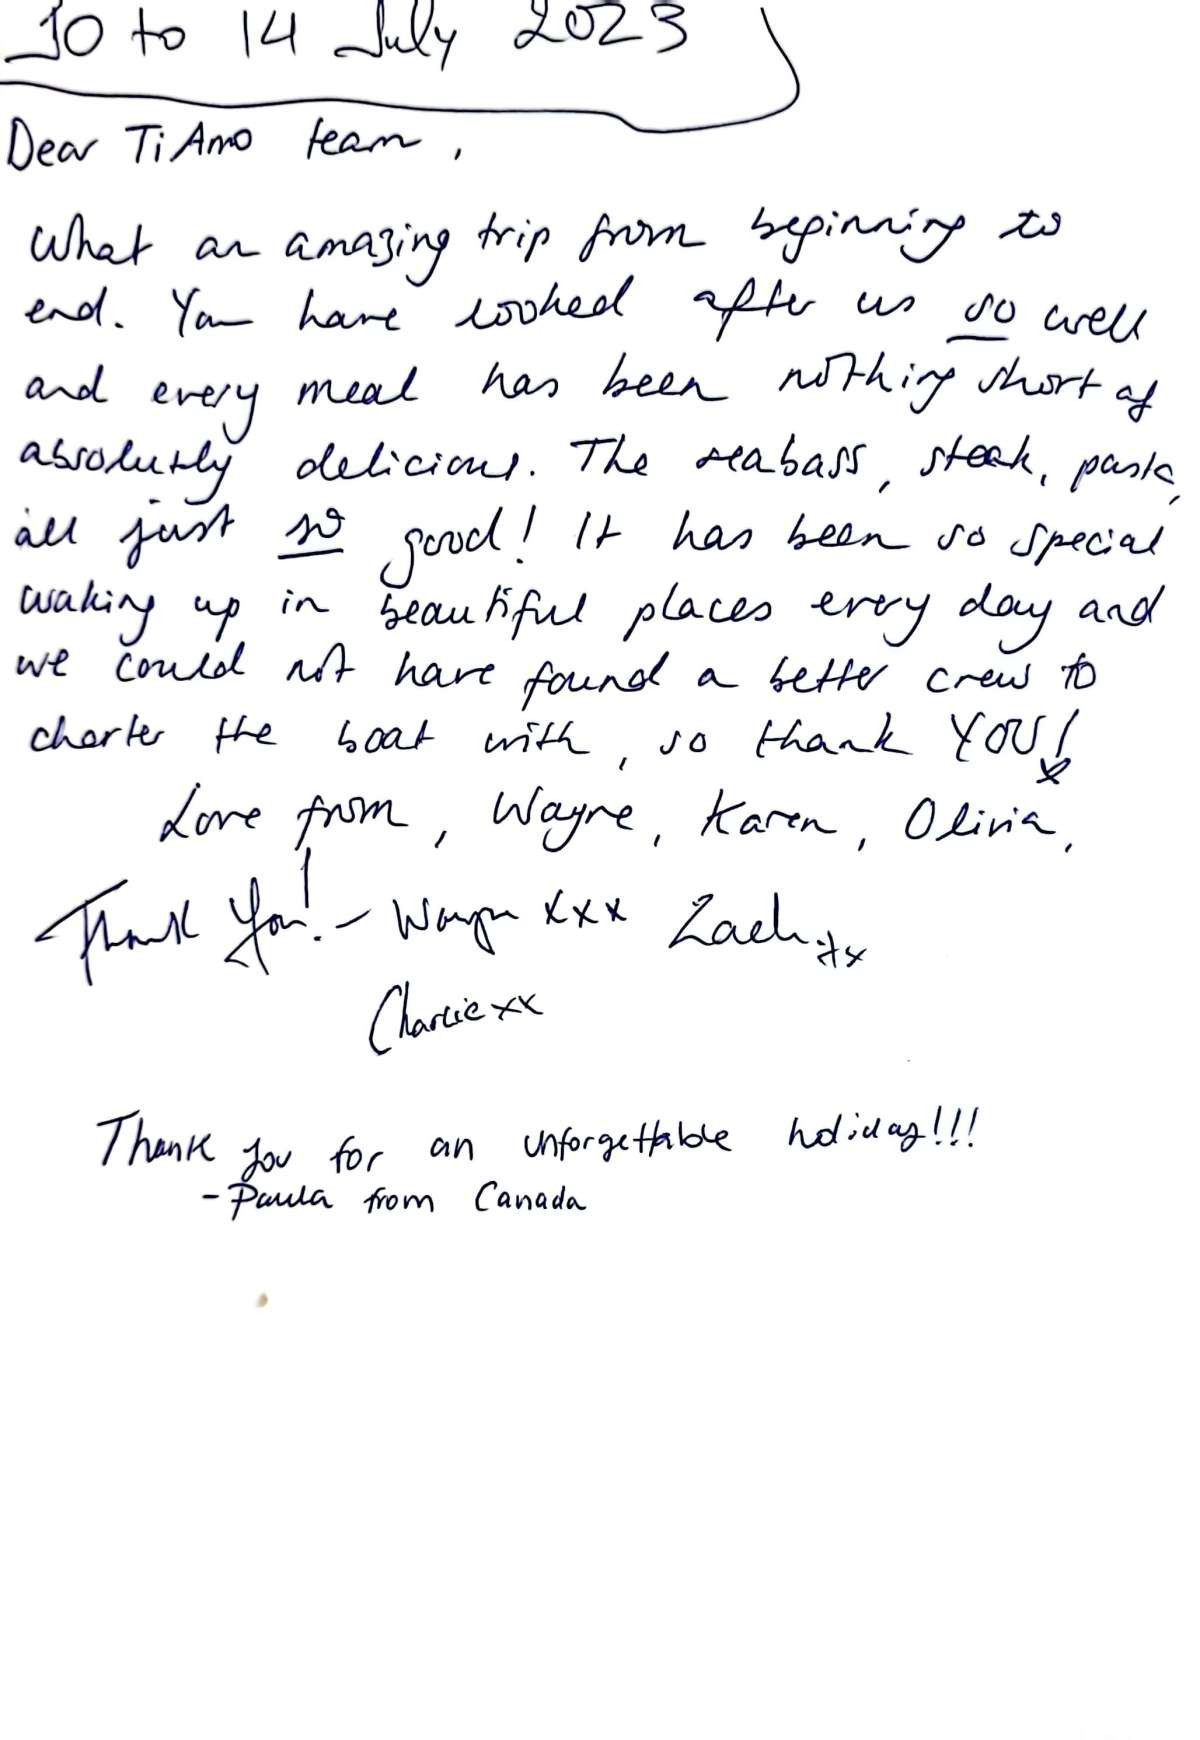 10 to 14 July 2023
Dear Ti Amo team,
What an amazing trip from beginning to
end. You have looked after us so well
and every meal has been nothing short of
absolutely delicious. The seabass, steak, pasta,
all just so good! It has been so special
waking up in beautiful places every day and
we could not have found a better crew to
charter the boat with, so thank YOU! x
Love from, Wayne, Karen, Olivia,
Thank You! - Wayne xxx Zach xx
Charlie xx
Thank you for an unforgettable holiday!!!
- Paula from Canada